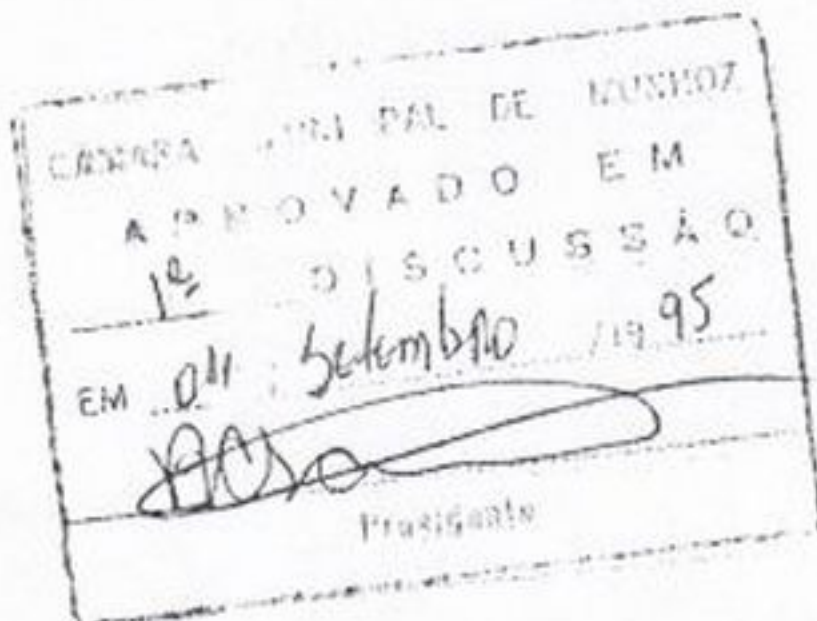 CÂMARA MUNICIPAL DE MUNHOZ
APROVADO EM
1ª DISCUSSÃO
EM 04 Setembro /19 95
Presidente